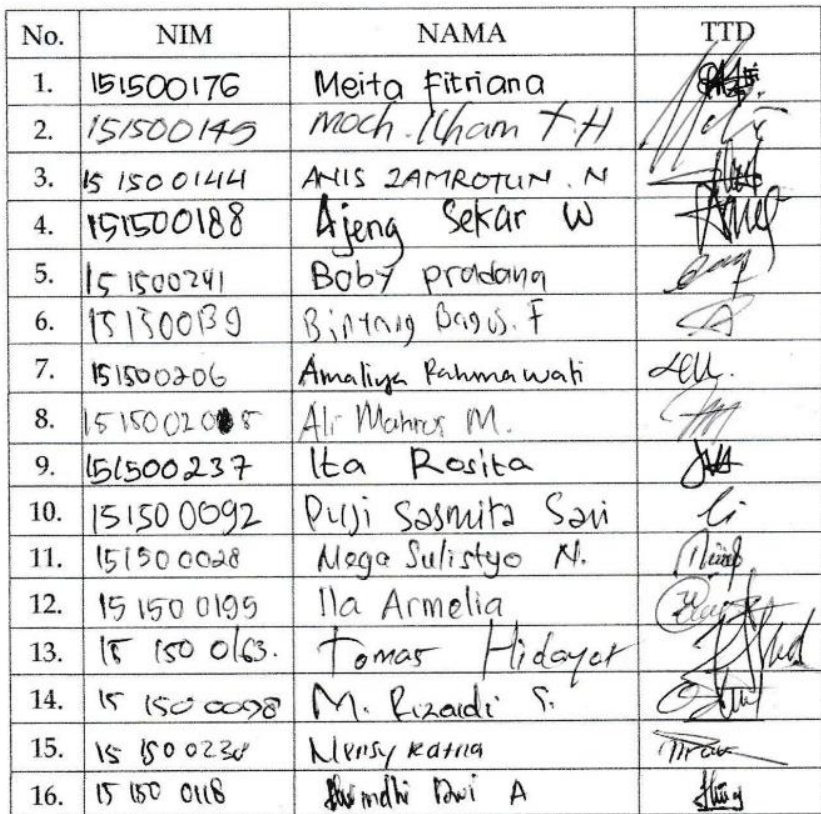 No. NIM NAMA TTD
1. 151500176 Meita Fitriana
2. 151500145 Moch. Ilham T.H
3. 151500144 ANIS ZAMROTUN . N
4. 151500188 Ajeng Sekar W
5. 151500241 Boby pradana
6. 151500139 Bintang Bagus. F
7. 151500206 Amaliya Rahmawati
8. Ali Mahrus M.
9. 151500237 Ita Rosita
10. 151500092 Puji Sasmita Sari
11. 151500028 Mega Sulistyo N.
12. 151500195 Ila Armelia
13. 151500163. Tomas Hidayat
14. 151500098 M. Rizaldi S.
15. Mensy Ratna
16. 151500118 Dwi A